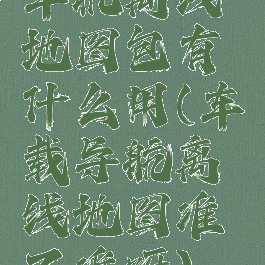 车机离线
地图包有
什么用(车
载导航离
线地图准